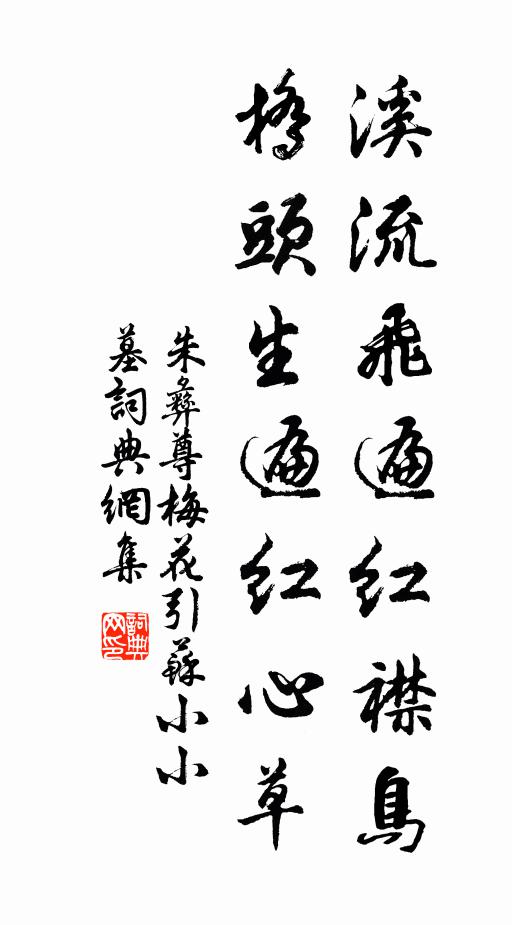 溪流飛遍紅襟鳥
橋頭生遍紅心草
朱彝尊梅花引蘇小小
墓詞典網集
詞典网印